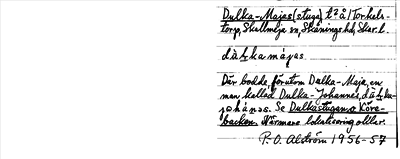 Dulka-Majas (stuga) t² å (Torkels-
torp, Skallmeja sn, Skånings hd, Skar. l.
dàłka májas.
Där bodde, förutom Dulka-Maja, en
man kallad Dulka-Johannes, dàłka-
johánəs. Se Dulkastugan o Köre-
backen. Närmare lokalisering
P. O. Alström 1956-57